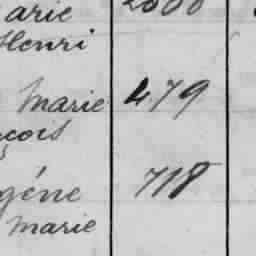 arie 2000
Henri
Marie 479
çois
gène 718
Marie